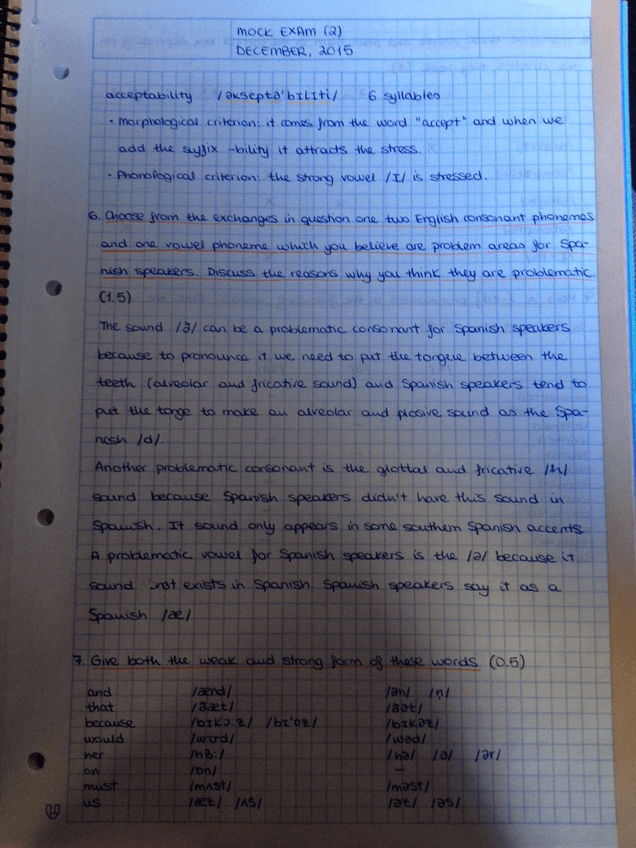 MOCK EXAM (2)
DECEMBER, 2015
acceptability /əkseptə'bɪLɪti/ 6 syllables
• Morphological criterion: it comes from the word "accept" and when we
add the suffix -bility it attracts the stress.
• Phonological criterion: the strong vowel /I/ is stressed.
6. Choose from the exchanges in question one two English consonant phonemes
and one vowel phoneme which you believe are problem areas for Spa-
nish speakers. Discuss the reasons why you think they are problematic
(1.5)
The sound /ð/ can be a problematic consonant for Spanish speakers
because to pronounce it we need to put the tongue between the
teeth (alveolar and fricative sound) and Spanish speakers tend to
put the tonge to make an alveolar and plosive sound as the Spa-
nish /d/.
Another problematic consonant is the glottal and fricative /h/
sound because Spanish speakers didn't have this sound in
Spanish. It sound only appears in some southern Spanish accents
A problematic vowel for Spanish speakers is the /ə/ because it
sound not exists in Spanish. Spanish speakers say it as a
Spanish /æ/
7. Give both the weak and strong form of these words (0.5)
and /ænd/ /ən/ /n̩/
that /ðæt/ /ðət/
because /bɪkɔ:z/ /bɪ'ɒz/ /bɪkəz/
would /wʊd/ /wəd/
her /hɜ:/ /hə/ /ə/ /ər/
on /ɒn/ —
must /mʌst/ /məst/
us /ʌs/ /əs/